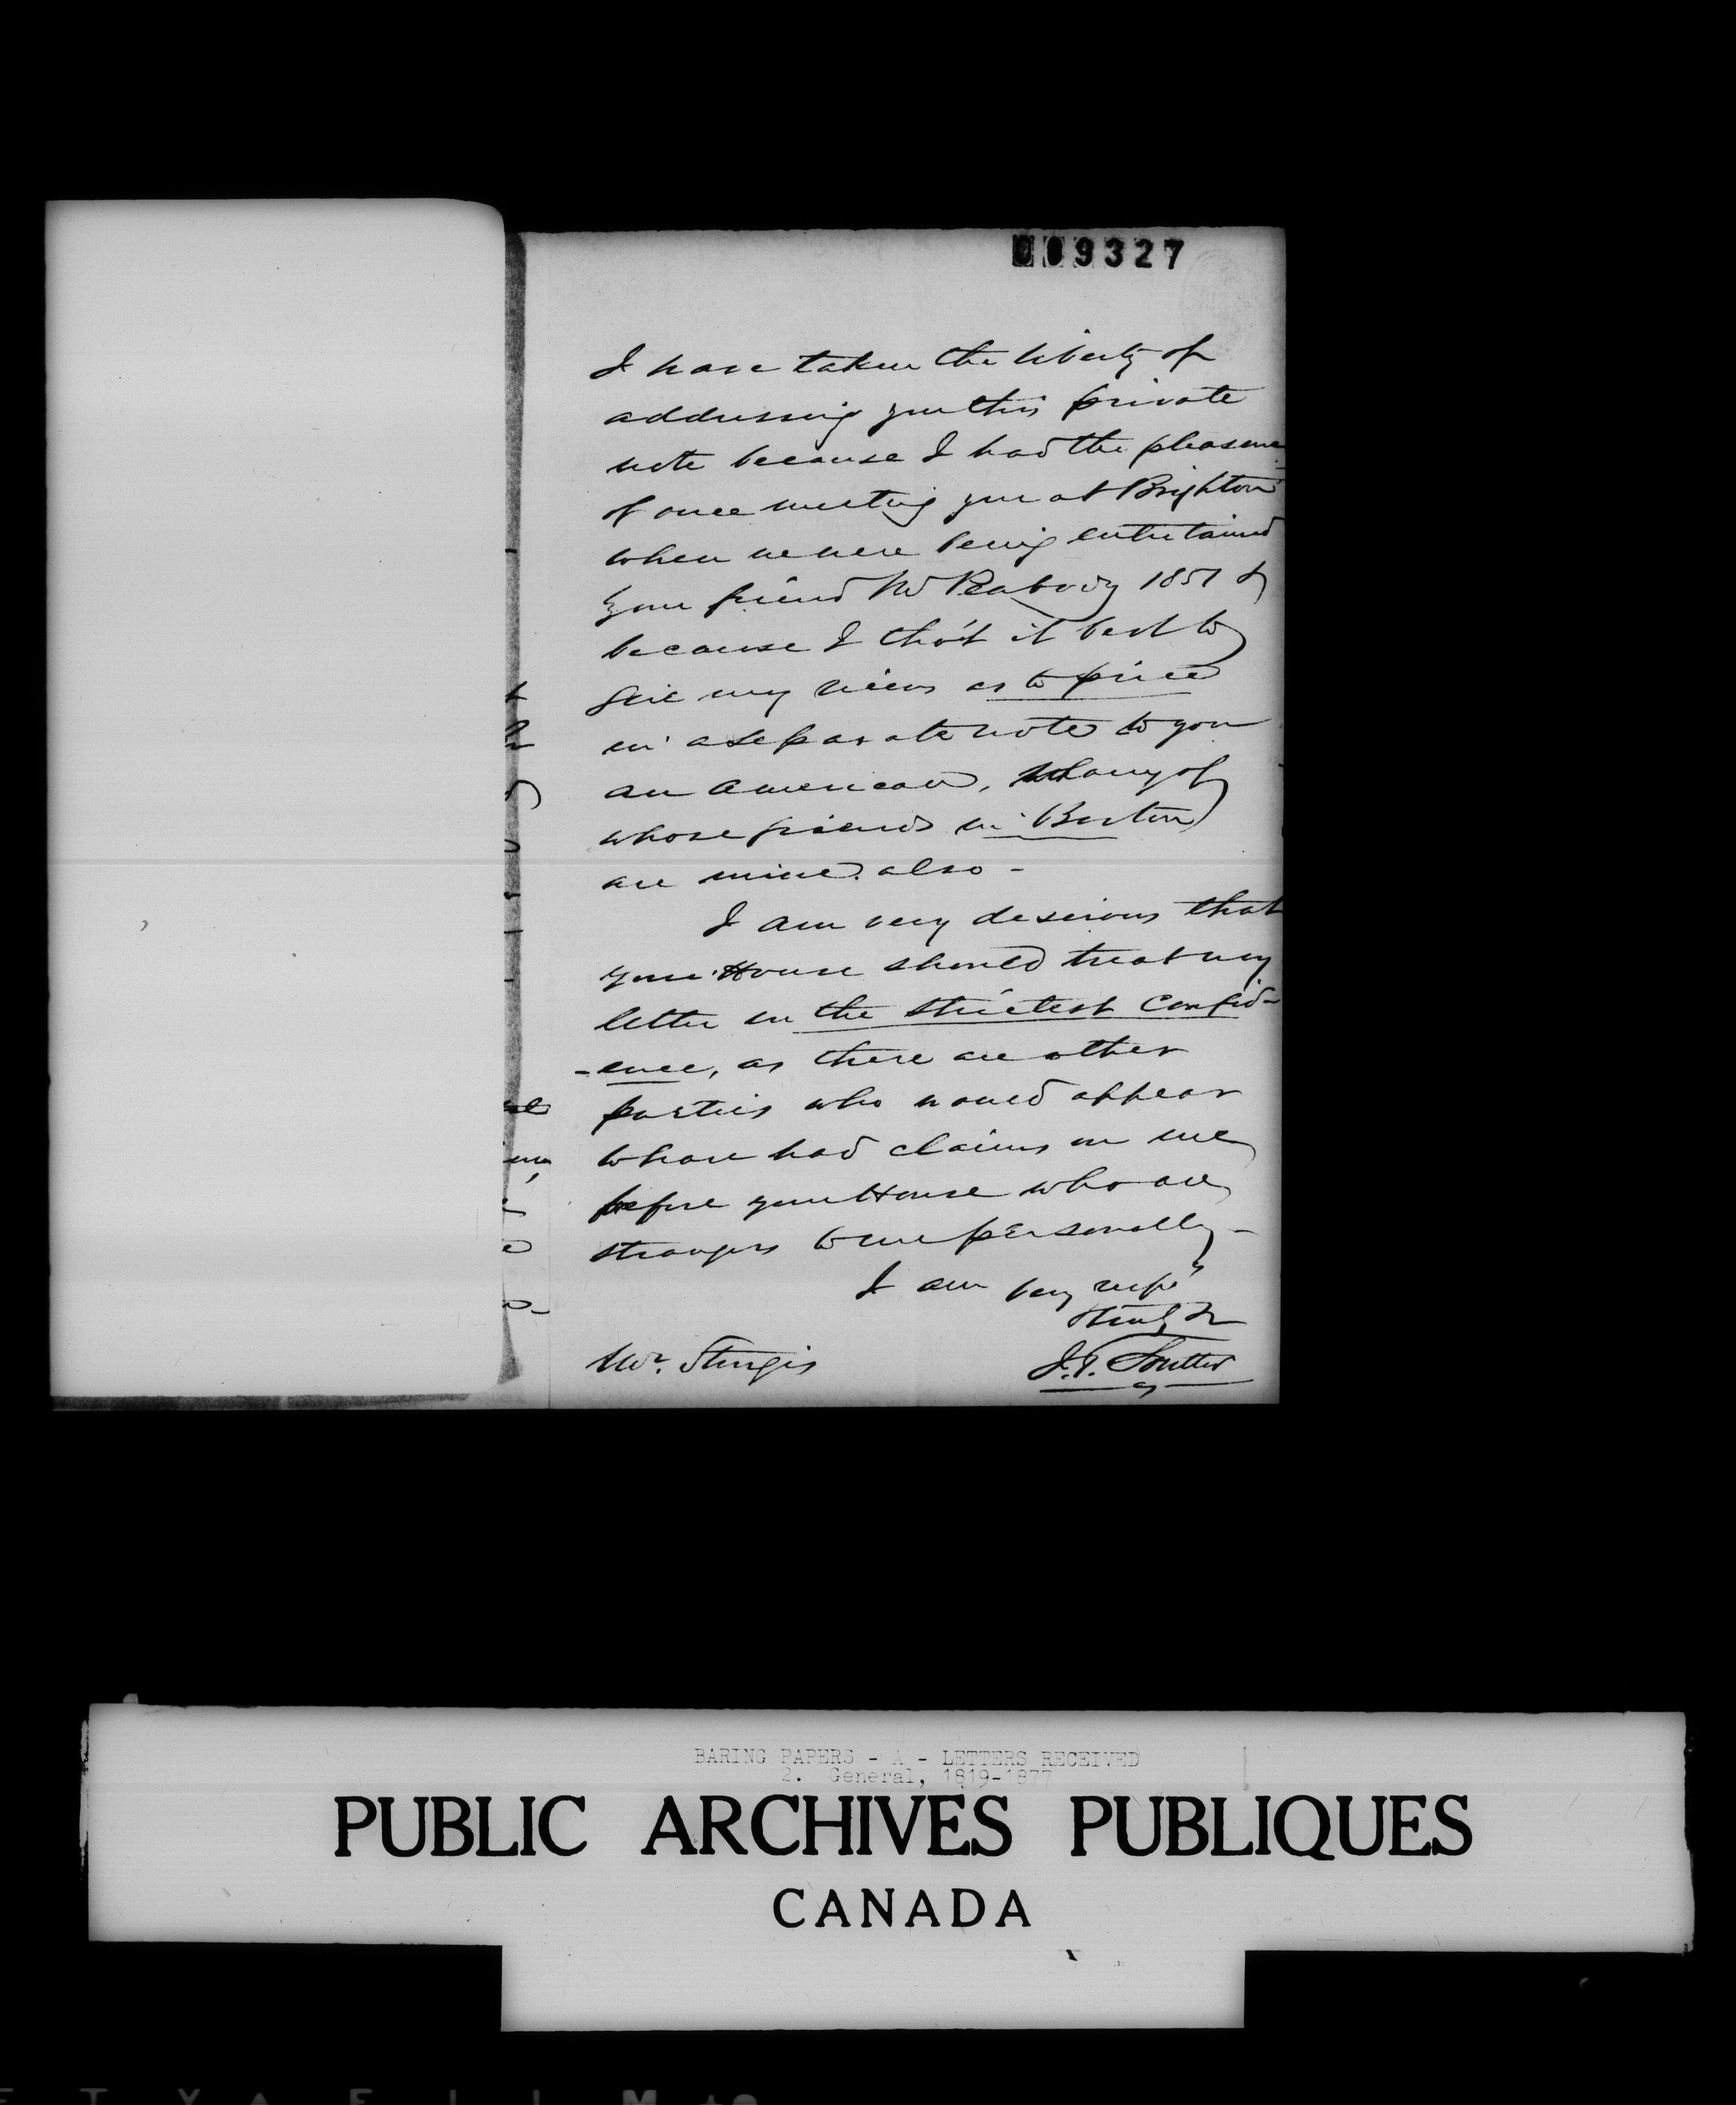 009327
I have taken the liberty of
addressing you this private
note because I had the pleasure
of once meeting you at Brighton
when we were being entertained
your friend Mr Peabody 1851 &
because I tho't it best to
give my views as to price
in a separate note to you
an American, many of
whose friends in Boston
are mine also -
I am very desirous that
your House should treat my
letter in the strictest Confid-
-ence, as there are other
parties who would appear
to have had claims on me
before your House who are
strangers to me personally -
I am very resp'y
J.T. Soutter
Mr. Sturgis
BARING PAPERS - A - LETTERS RECEIVED
2. General, 1819-1877
PUBLIC ARCHIVES PUBLIQUES
CANADA